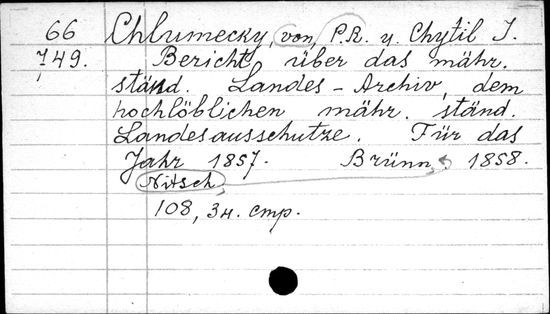 66 Chlumecky, von, P.R. y. Chytil J.
749. Bericht über das mähr.
ständ. Landes-Archiv dem
hochlöblichen mähr. ständ.
Landesausschutze. Für das
Jahr 1857. Brünn, 1858.
Nitsch,
108, 3 н. стр.